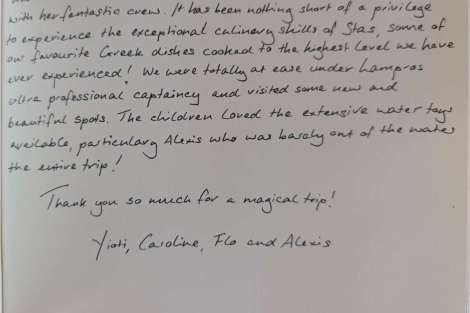 with her fantastic crew. It has been nothing short of a privilege
to experience the exceptional culinary skills of Stas, some of
our favourite Greek dishes cooked to the highest level we have
ever experienced! We were totally at ease under Lampros
ultra professional captaincy and visited some new and
beautiful spots. The children loved the extensive water toys
available, particulary Alexis who was barely out of the water
the entire trip!
Thank you so much for a magical trip!
Yioti, Caroline, Flo and Alexis